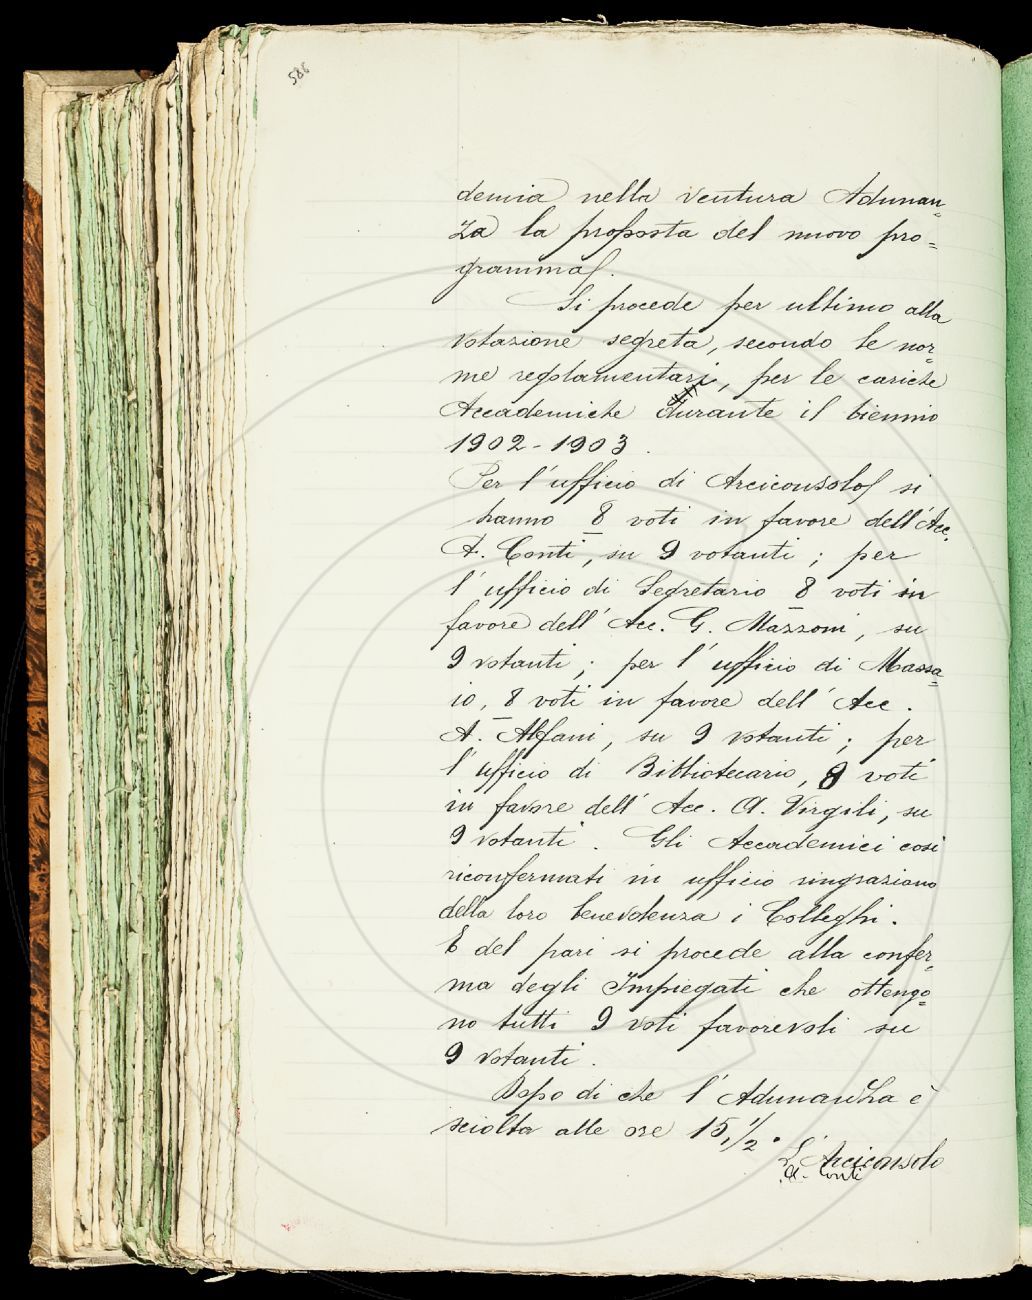 586
demia nella ventura Adunan=
za la proposta del nuovo pro=
gramma.
Si procede per ultimo alla
votazione segreta, secondo le nor=
me regolamentari, per le cariche
Accademiche durante il biennio
1902-1903.
Per l'ufficio di Arciconsolo si
hanno 8 voti in favore dell'Acc.
A. Conti, su 9 votanti; per
l'ufficio di Segretario 8 voti in
favore dell'Acc. G. Mazzoni, su
9 votanti; per l'ufficio di Massa=
io, 8 voti in favore dell'Acc.
A. Alfani, su 9 votanti; per
l'ufficio di Bibliotecario, 8 voti
in favore dell'Acc. A. Virgili, su
9 votanti. Gli Accademici così
riconfermati in ufficio ringraziano
della loro benevolenza i Colleghi.
E del pari si procede alla confer=
ma degli Impiegati che ottengo=
no tutti 9 voti favorevoli su
9 votanti.
Dopo di che l'Adunanza è
sciolta alle ore 15,1/2.
L'Arciconsolo
A. Conti